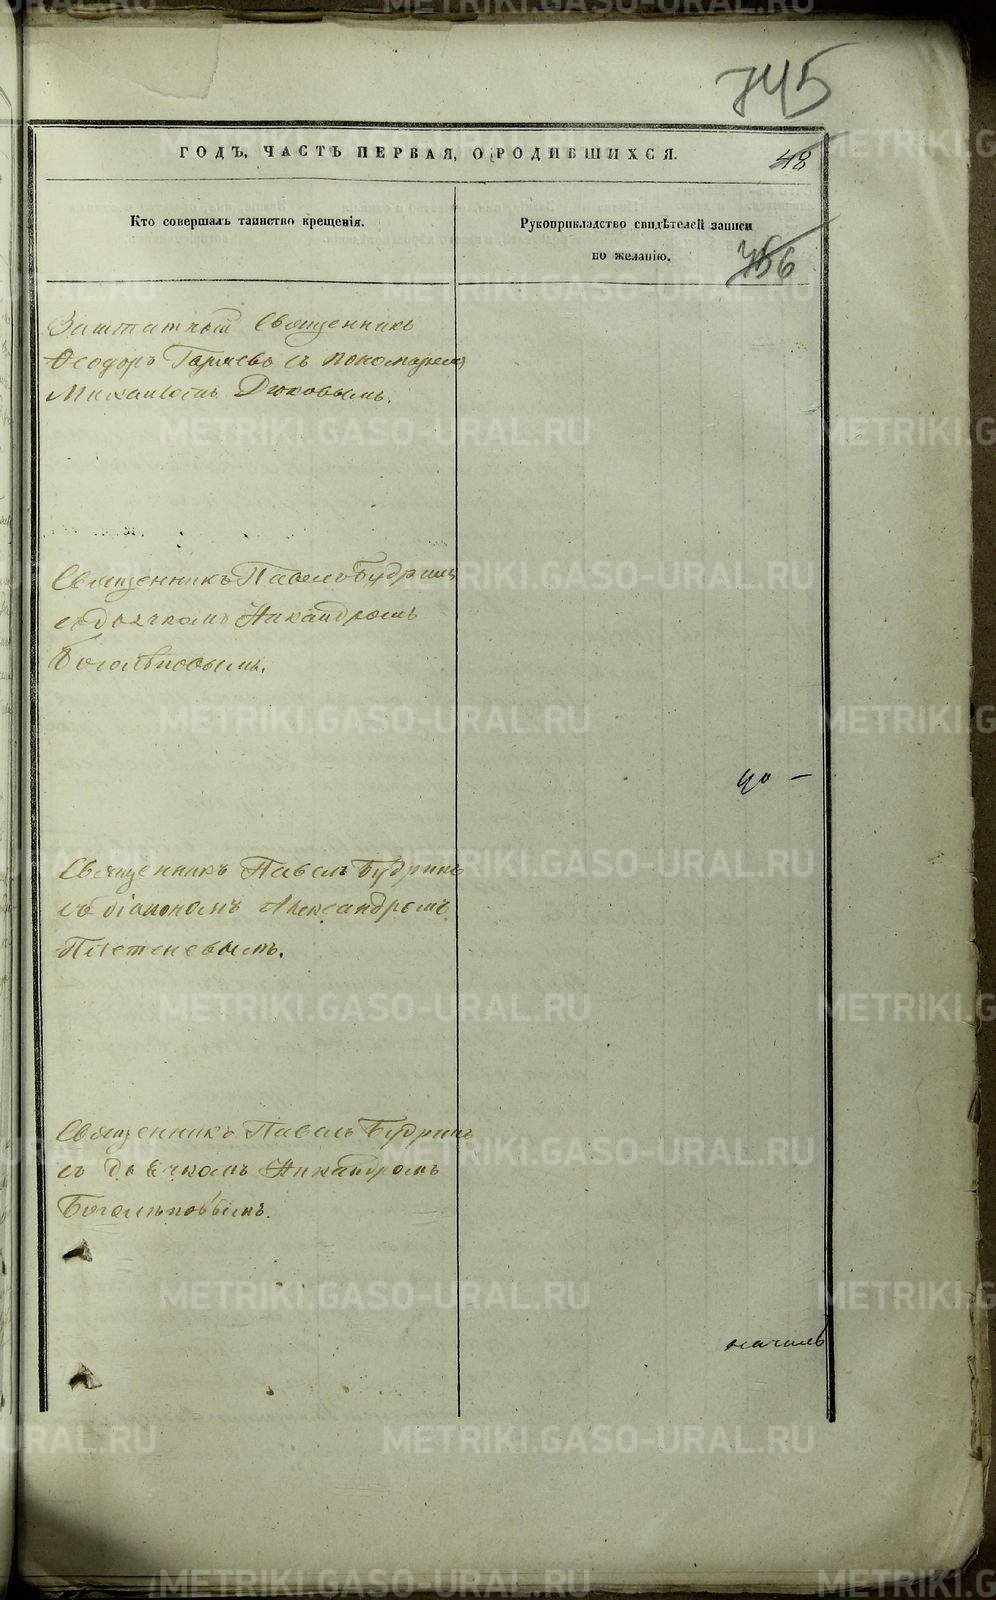 745
ГОДЪ, ЧАСТЬ ПЕРВАЯ, О РОДИВШИХСЯ.
48
Кто совершалъ таинство крещенія.
Рукоприкладство свидѣтелей записи
по желанію.
Заштатный Священникъ
Ѳеодоръ Гаряевъ съ пономаремъ
Михаиломъ Дюковымъ.
Священникъ Павелъ Будринъ
съ дьячкомъ Никандромъ
Боголѣповымъ.
Священникъ Павелъ Будринъ
съ діакономъ Александромъ
Плетеневымъ.
Священникъ Павелъ Будринъ
съ дьячкомъ Никандромъ
Боголѣповымъ.
METRIKI.GASO-URAL.RU